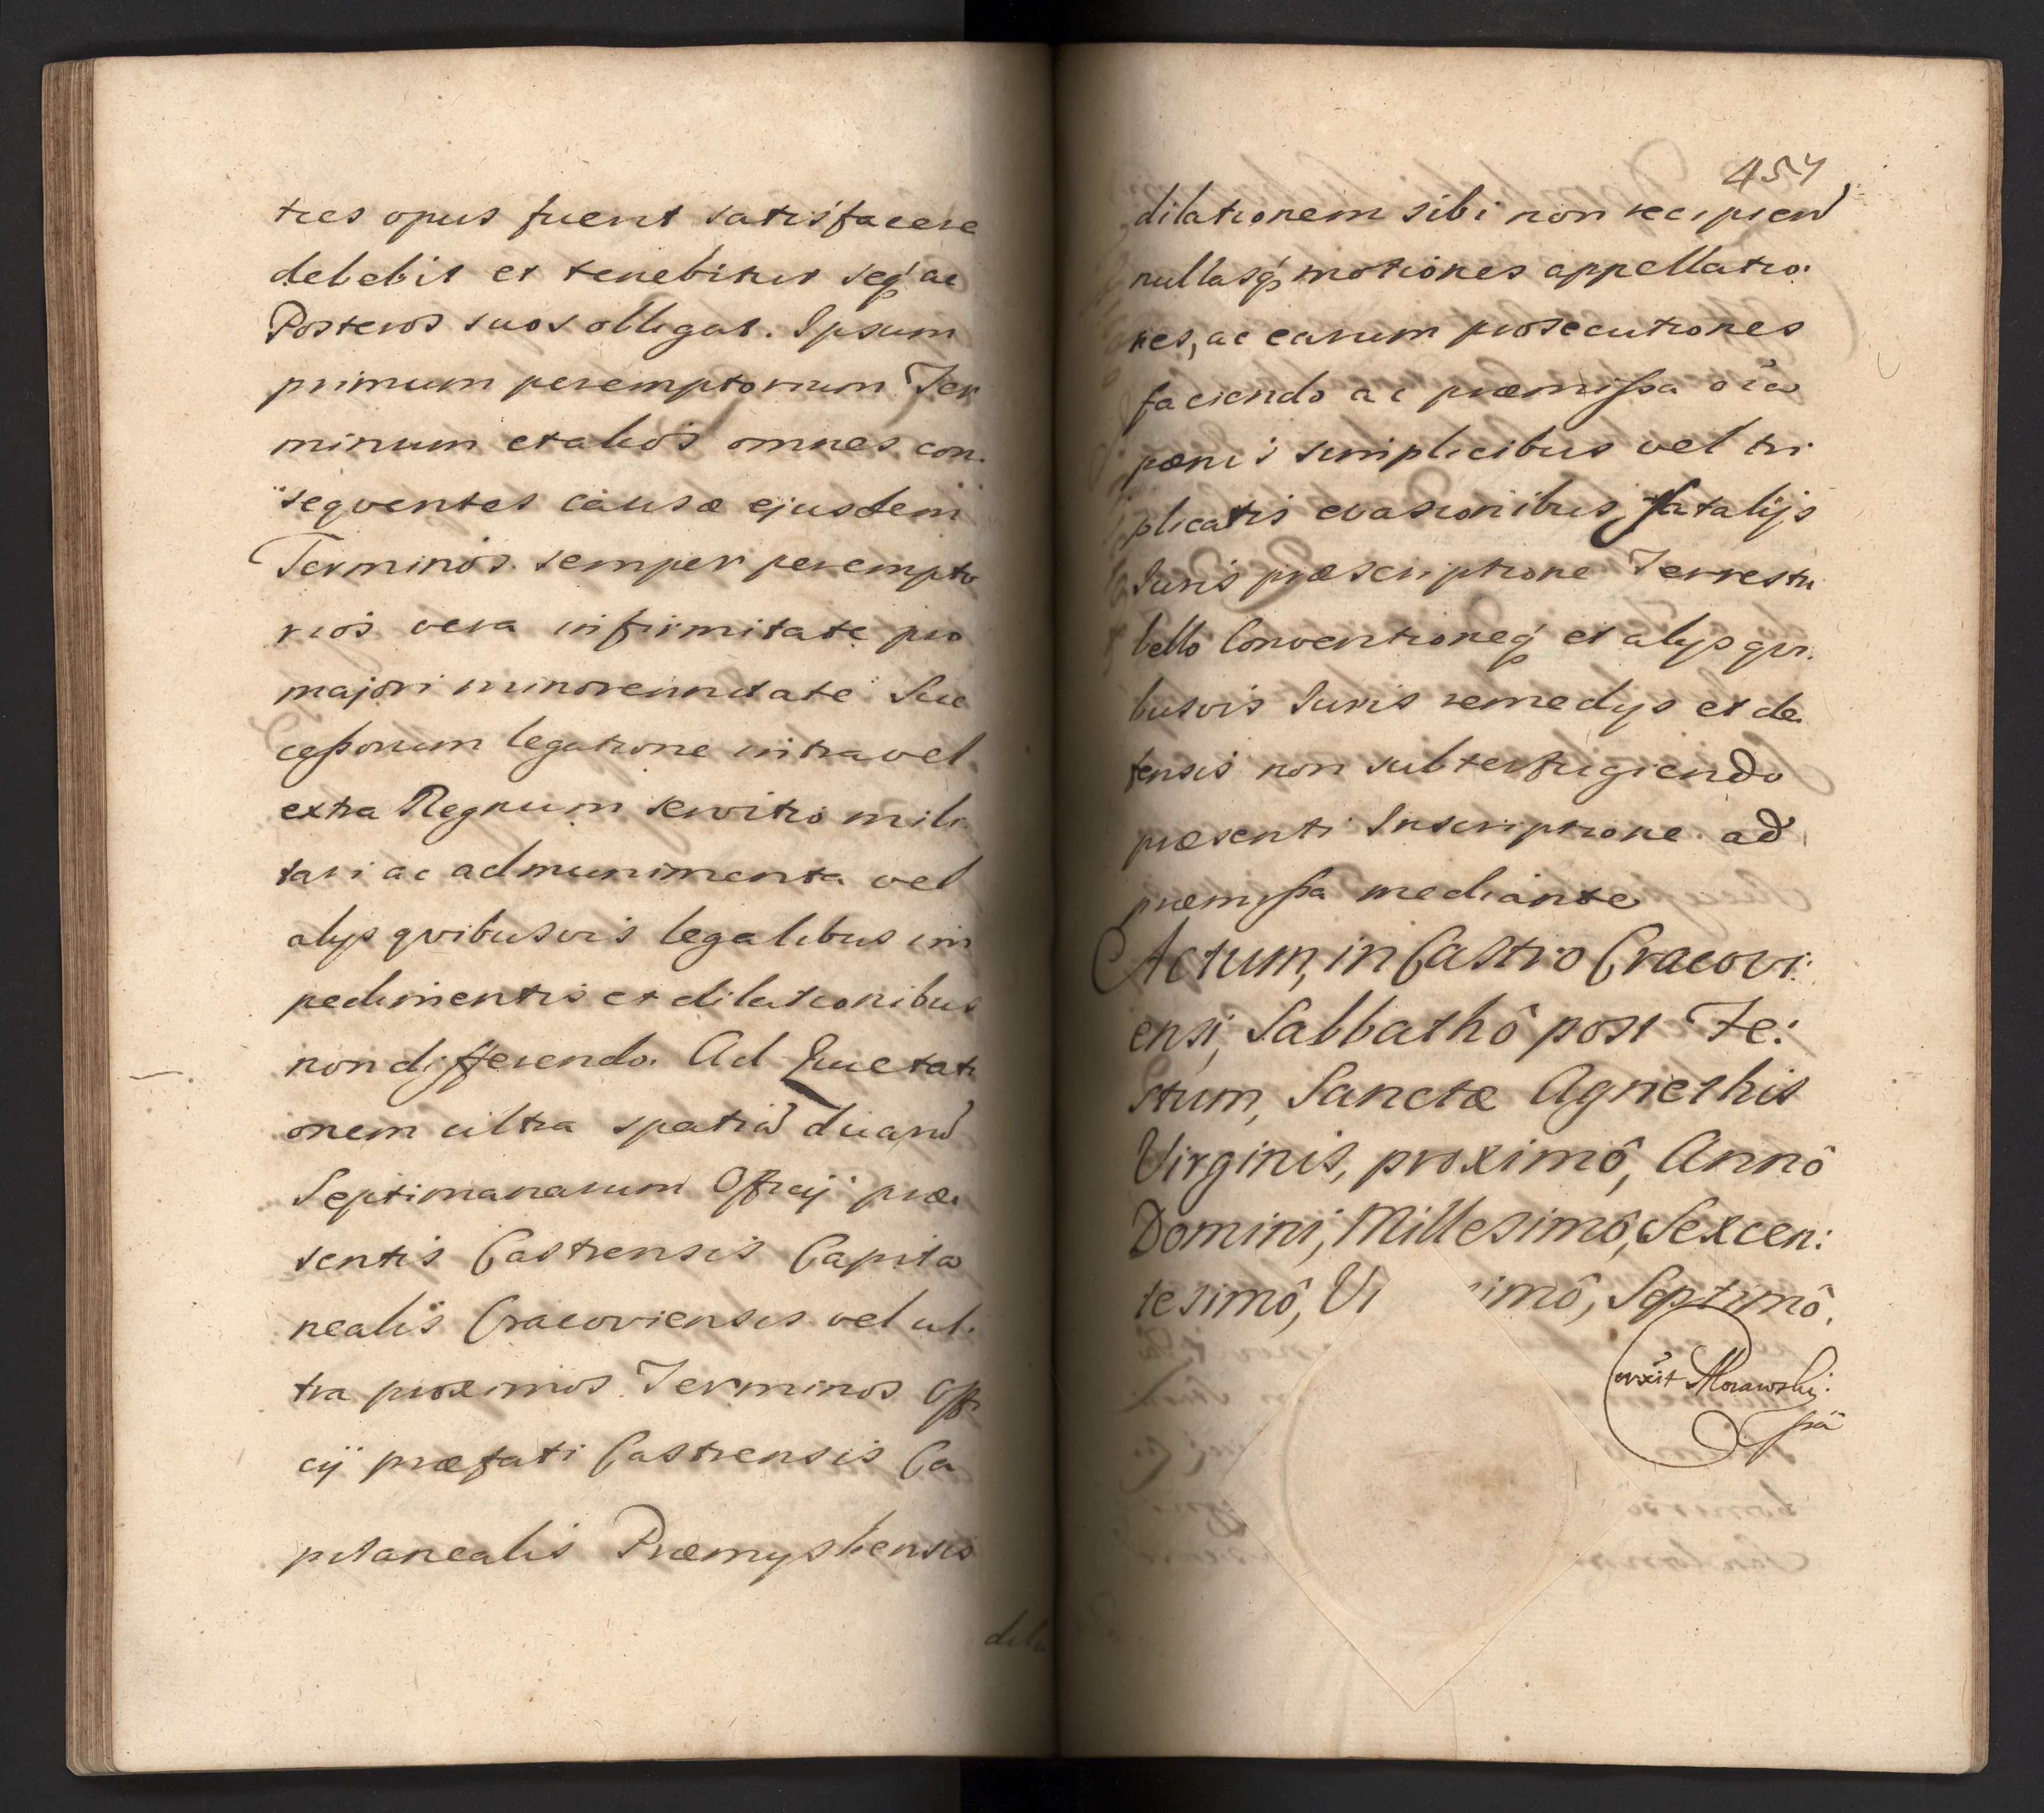 ties opus fuerit satisfacere
debebit et tenebitur seq́ ac
Posteros suos obligat. Ipsum
primum peremptorium Ter
minum et alios omnes con.
seqventes causæ ejusdem
Terminos semper perempto
rios vera infirmitate pro
majori minorennitate Suc
ceßorum legatione intra vel
extra Regnum servitio mili
tari ac ad munimenta vel
alijs qvibusvis legalibus im
pedimentis et dilationibus
non differendo. Ad Quietati
onem ultra spatiũ duarũ
Septimanarum Officij præ.
sentis Castrensis Capita
nealis Cracoviensis vel ul.
tra proximos Terminos Offi
cij præfati Castrensis Ca
pitanealis Præmysliensis
dila
454
dilationem sibi non recipien
nullasq́ motiones appellatio.
nes, ac earum prosecutiones
faciendo ac præmißa oĩa
pænis simplicibus vel tri
plicatis evasionibus, fatalijs
Juris præscriptione Terrestri
bello Conventioneq́ et alijs qvi.
busvis Juris remedijs et de.
fensis non subterfugiendo
præsenti Inscriptione ad
præmißa mediante
Actum, in Castro Cracovi:
ensi, Sabbathô post Fe:
stum, Sanctæ Agnethis
Virginis, proximô, Annô
Domini, Millesimô, Sexcen:
tesimô, Vi simô, Septimô.
Morawski